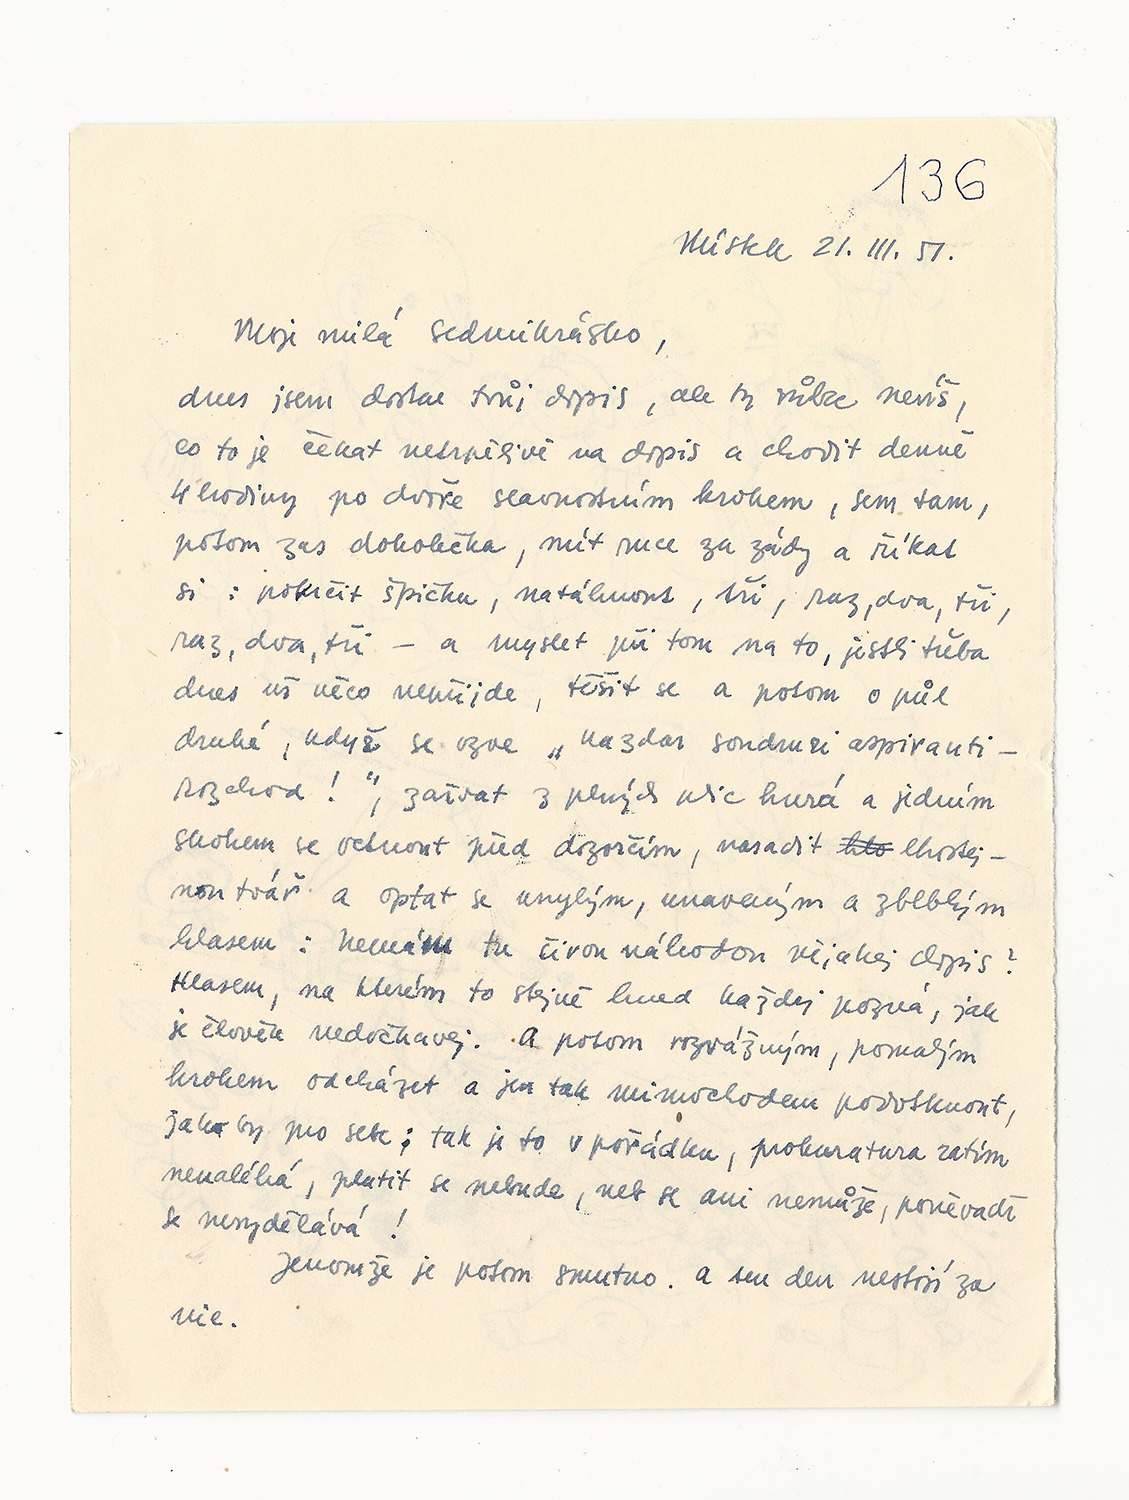 136
Místek 21. III. 51.
Moje milá sedmikrásko,
dnes jsem dostal tvůj dopis, ale ty vůbec nevíš,
co to je čekat netrpělivě na dopis a chodit denně
4 hodiny po dvoře slavnostním krokem, sem tam,
potom zas dokolečka, mít ruce za zády a říkat
si : pokrčit špičku, natáhnout, tři, raz, dva, tři,
raz, dva, tři – a myslet při tom na to, jestli třeba
dnes už něco nepřijde, těšit se a potom o půl
druhé, když se ozve „nazdar soudruzi aspiranti –
rozchod ! “, zařvat z plných plic hurá a jedním
skokem se octnout před dozorčím, nasadit hlo lhostej-
nou tvář a optat se unylým, unaveným a zblblým
hlasem : Nemám tu čirou náhodou nějakej dopis?
Hlasem, na kterém to stejně hned každej pozná, jak
je člověk nedočkavej. A potom rozvážným, pomalým
krokem odcházet a jen tak mimochodem podotknout,
jako by pro sebe ; tak je to v pořádku, prokuratura zatím
nenaléhá, platit se nebude, neb se ani nemůže, poněvadž
se nevydělává !
Jenomže je potom smutno. a ten den nestojí za
nic.